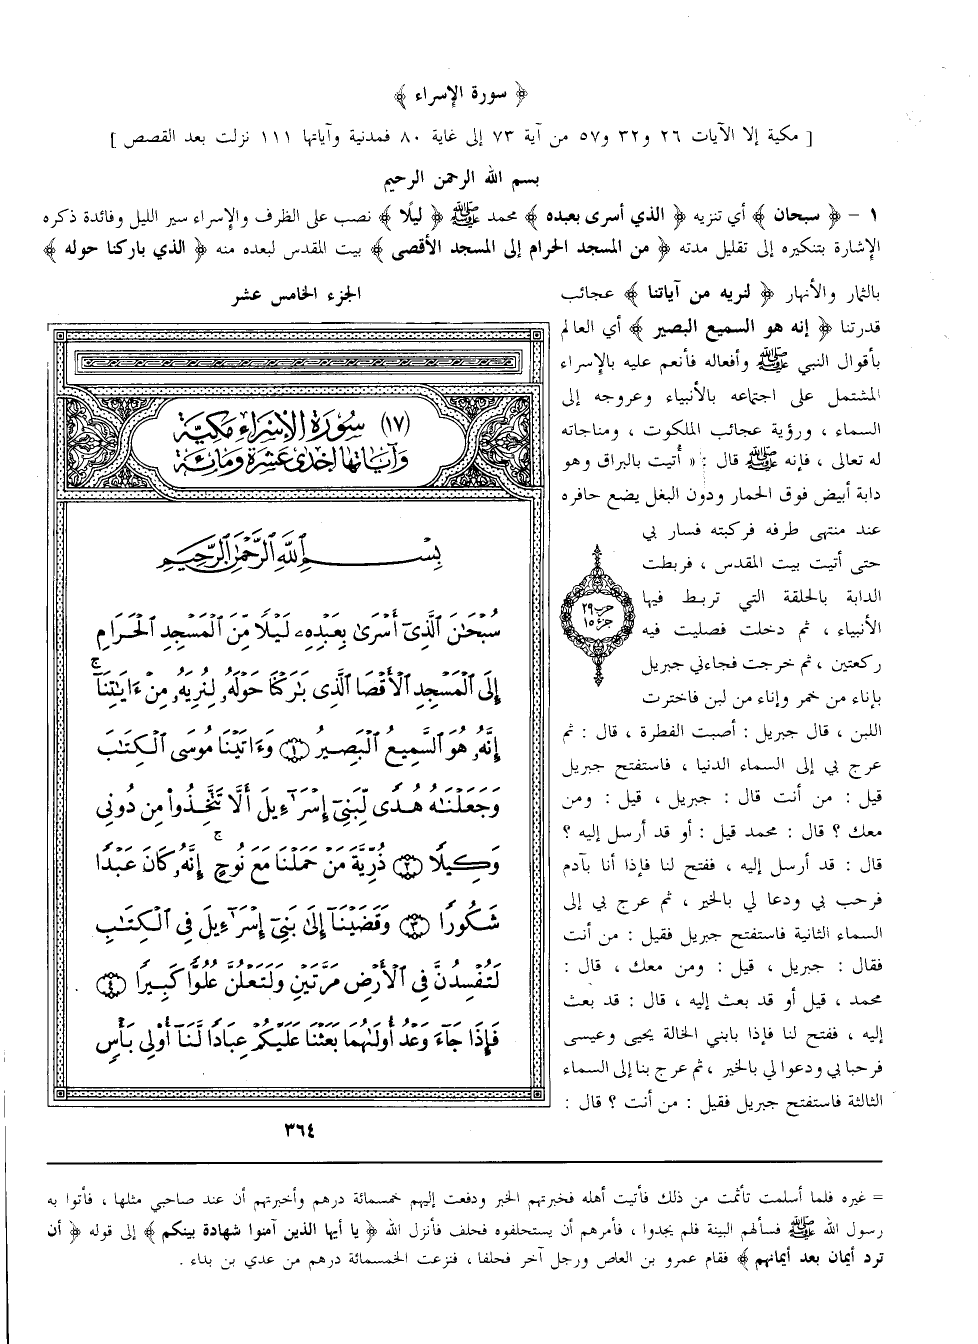 ﴿ سورة الإسراء ﴾
[ مكية إلا الآيات ٢٦ و٣٢ و٥٧ من آية ٧٣ إلى غاية ٨٠ فمدنية وآياتها ١١١ نزلت بعد القصص ]
بسم الله الرحمن الرحيم
١ - ﴿ سبحان ﴾ أي تنزيه ﴿ الذي أسرى بعبده ﴾ محمد ﷺ ﴿ ليلًا ﴾ نصب على الظرف والإسراء سير الليل وفائدة ذكره
الإشارة بتنكيره إلى تقليل مدته ﴿ من المسجد الحرام إلى المسجد الأقصى ﴾ بيت المقدس لبعده منه ﴿ الذي باركنا حوله ﴾
بالثمار والأنهار ﴿ لنريه من آياتنا ﴾ عجائب
قدرتنا ﴿ إنه هو السميع البصير ﴾ أي العالم
بأقوال النبي ﷺ وأفعاله فأنعم عليه بالإسراء
المشتمل على اجتماعه بالأنبياء وعروجه إلى
السماء ، ورؤية عجائب الملكوت ، ومناجاته
له تعالى ، فإنه ﷺ قال : « أتيت بالبراق وهو
دابة أبيض فوق الحمار ودون البغل يضع حافره
عند منتهى طرفه فركبته فسار بي
حتى أتيت بيت المقدس ، فربطت
الدابة بالحلقة التي تربط فيها
الأنبياء ، ثم دخلت فصليت فيه
ركعتين ، ثم خرجت فجاءني جبريل
بإناء من خمر وإناء من لبن فاخترت
اللبن ، قال جبريل : أصبت الفطرة ، قال : ثم
عرج بي إلى السماء الدنيا ، فاستفتح جبريل
قيل : من أنت قال : جبريل ، قيل : ومن
معك ؟ قال : محمد قيل : أو قد أرسل إليه ؟
قال : قد أرسل إليه ، ففتح لنا فإذا أنا بآدم
فرحب بي ودعا لي بالخير ، ثم عرج بي إلى
السماء الثانية فاستفتح جبريل فقيل : من أنت
فقال : جبريل ، قيل : ومن معك ، قال :
محمد ، قيل أو قد بعث إليه ، قال : قد بعث
إليه ، ففتح لنا فإذا بابني الخالة يحيى وعيسى
فرحبا بي ودعوا لي بالخير ، ثم عرج بنا إلى السماء
الثالثة فاستفتح جبريل فقيل : من أنت ؟ قال :
حزب ٢٩
جزء ١٥
الجزء الخامس عشر
(١٧) سُورَةُ الإِسْرَاءِ مَكِيَّة
وَآيَاتُهَا إِحْدَى عَشَرَةَ وَمِائَة
بِسْمِ اللَّهِ الرَّحْمَٰنِ الرَّحِيمِ
سُبْحَٰنَ ٱلَّذِىٓ أَسْرَىٰ بِعَبْدِهِۦ لَيْلًا مِّنَ ٱلْمَسْجِدِ ٱلْحَرَامِ
إِلَى ٱلْمَسْجِدِ ٱلْأَقْصَا ٱلَّذِى بَٰرَكْنَا حَوْلَهُۥ لِنُرِيَهُۥ مِنْ ءَايَٰتِنَآ ۚ
إِنَّهُۥ هُوَ ٱلسَّمِيعُ ٱلْبَصِيرُ ﴿١﴾ وَءَاتَيْنَا مُوسَى ٱلْكِتَٰبَ
وَجَعَلْنَٰهُ هُدًى لِّبَنِىٓ إِسْرَٰٓءِيلَ أَلَّا تَتَّخِذُوا۟ مِن دُونِى
وَكِيلًا ﴿٢﴾ ذُرِّيَّةَ مَنْ حَمَلْنَا مَعَ نُوحٍ ۚ إِنَّهُۥ كَانَ عَبْدًا
شَكُورًا ﴿٣﴾ وَقَضَيْنَآ إِلَىٰ بَنِىٓ إِسْرَٰٓءِيلَ فِى ٱلْكِتَٰبِ
لَتُفْسِدُنَّ فِى ٱلْأَرْضِ مَرَّتَيْنِ وَلَتَعْلُنَّ عُلُوًّا كَبِيرًا ﴿٤﴾
فَإِذَا جَآءَ وَعْدُ أُولَىٰهُمَا بَعَثْنَا عَلَيْكُمْ عِبَادًا لَّنَآ أُو۟لِى بَأْسٍ
٣٦٤
= غيره فلما أسلمت تأثمت من ذلك فأتيت أهله فخبرتهم الخبر ودفعت إليهم خمسمائة درهم وأخبرتهم أن عند صاحبي مثلها ، فأتوا به
رسول الله ﷺ فسألهم البينة فلم يجدوا ، فأمرهم أن يستحلفوه فحلف فأنزل الله ﴿ يا أيها الذين آمنوا شهادة بينكم ﴾ إلى قوله ﴿ أن
ترد أيمان بعد أيمانهم ﴾ فقام عمرو بن العاص ورجل آخر فحلفا ، فنزعت الخمسمائة درهم من عدي بن بداء .